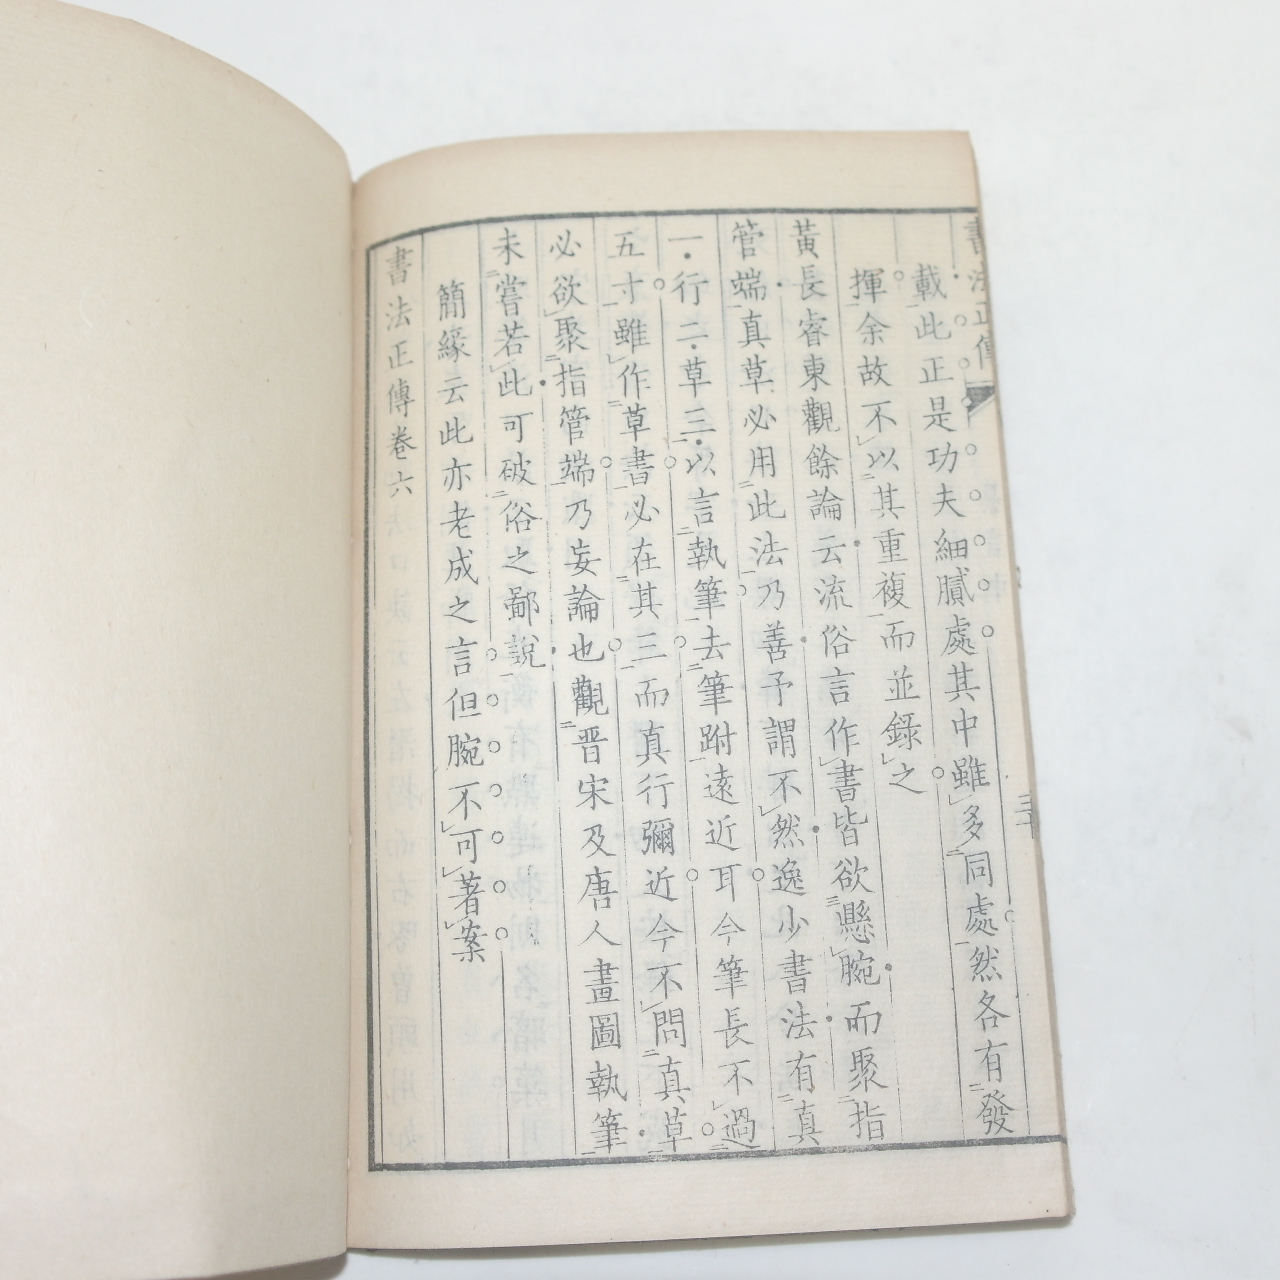 書法正傳
三十
載此正是功夫細膩處其中雖多同處然各有發
揮余故不以其重複而並錄之
黃長睿東觀餘論云流俗言作書皆欲懸腕而聚指
管端真草必用此法乃善予謂不然逸少書法有真
一行二草三以言執筆去筆跗遠近耳今筆長不過
五寸雖作草書必在其三而真行彌近今不問真草
必欲聚指管端乃妄論也觀晉宋及唐人畫圖執筆
未嘗若此可破俗之鄙說
簡緣云此亦老成之言但腕不可著案
書法正傳卷六